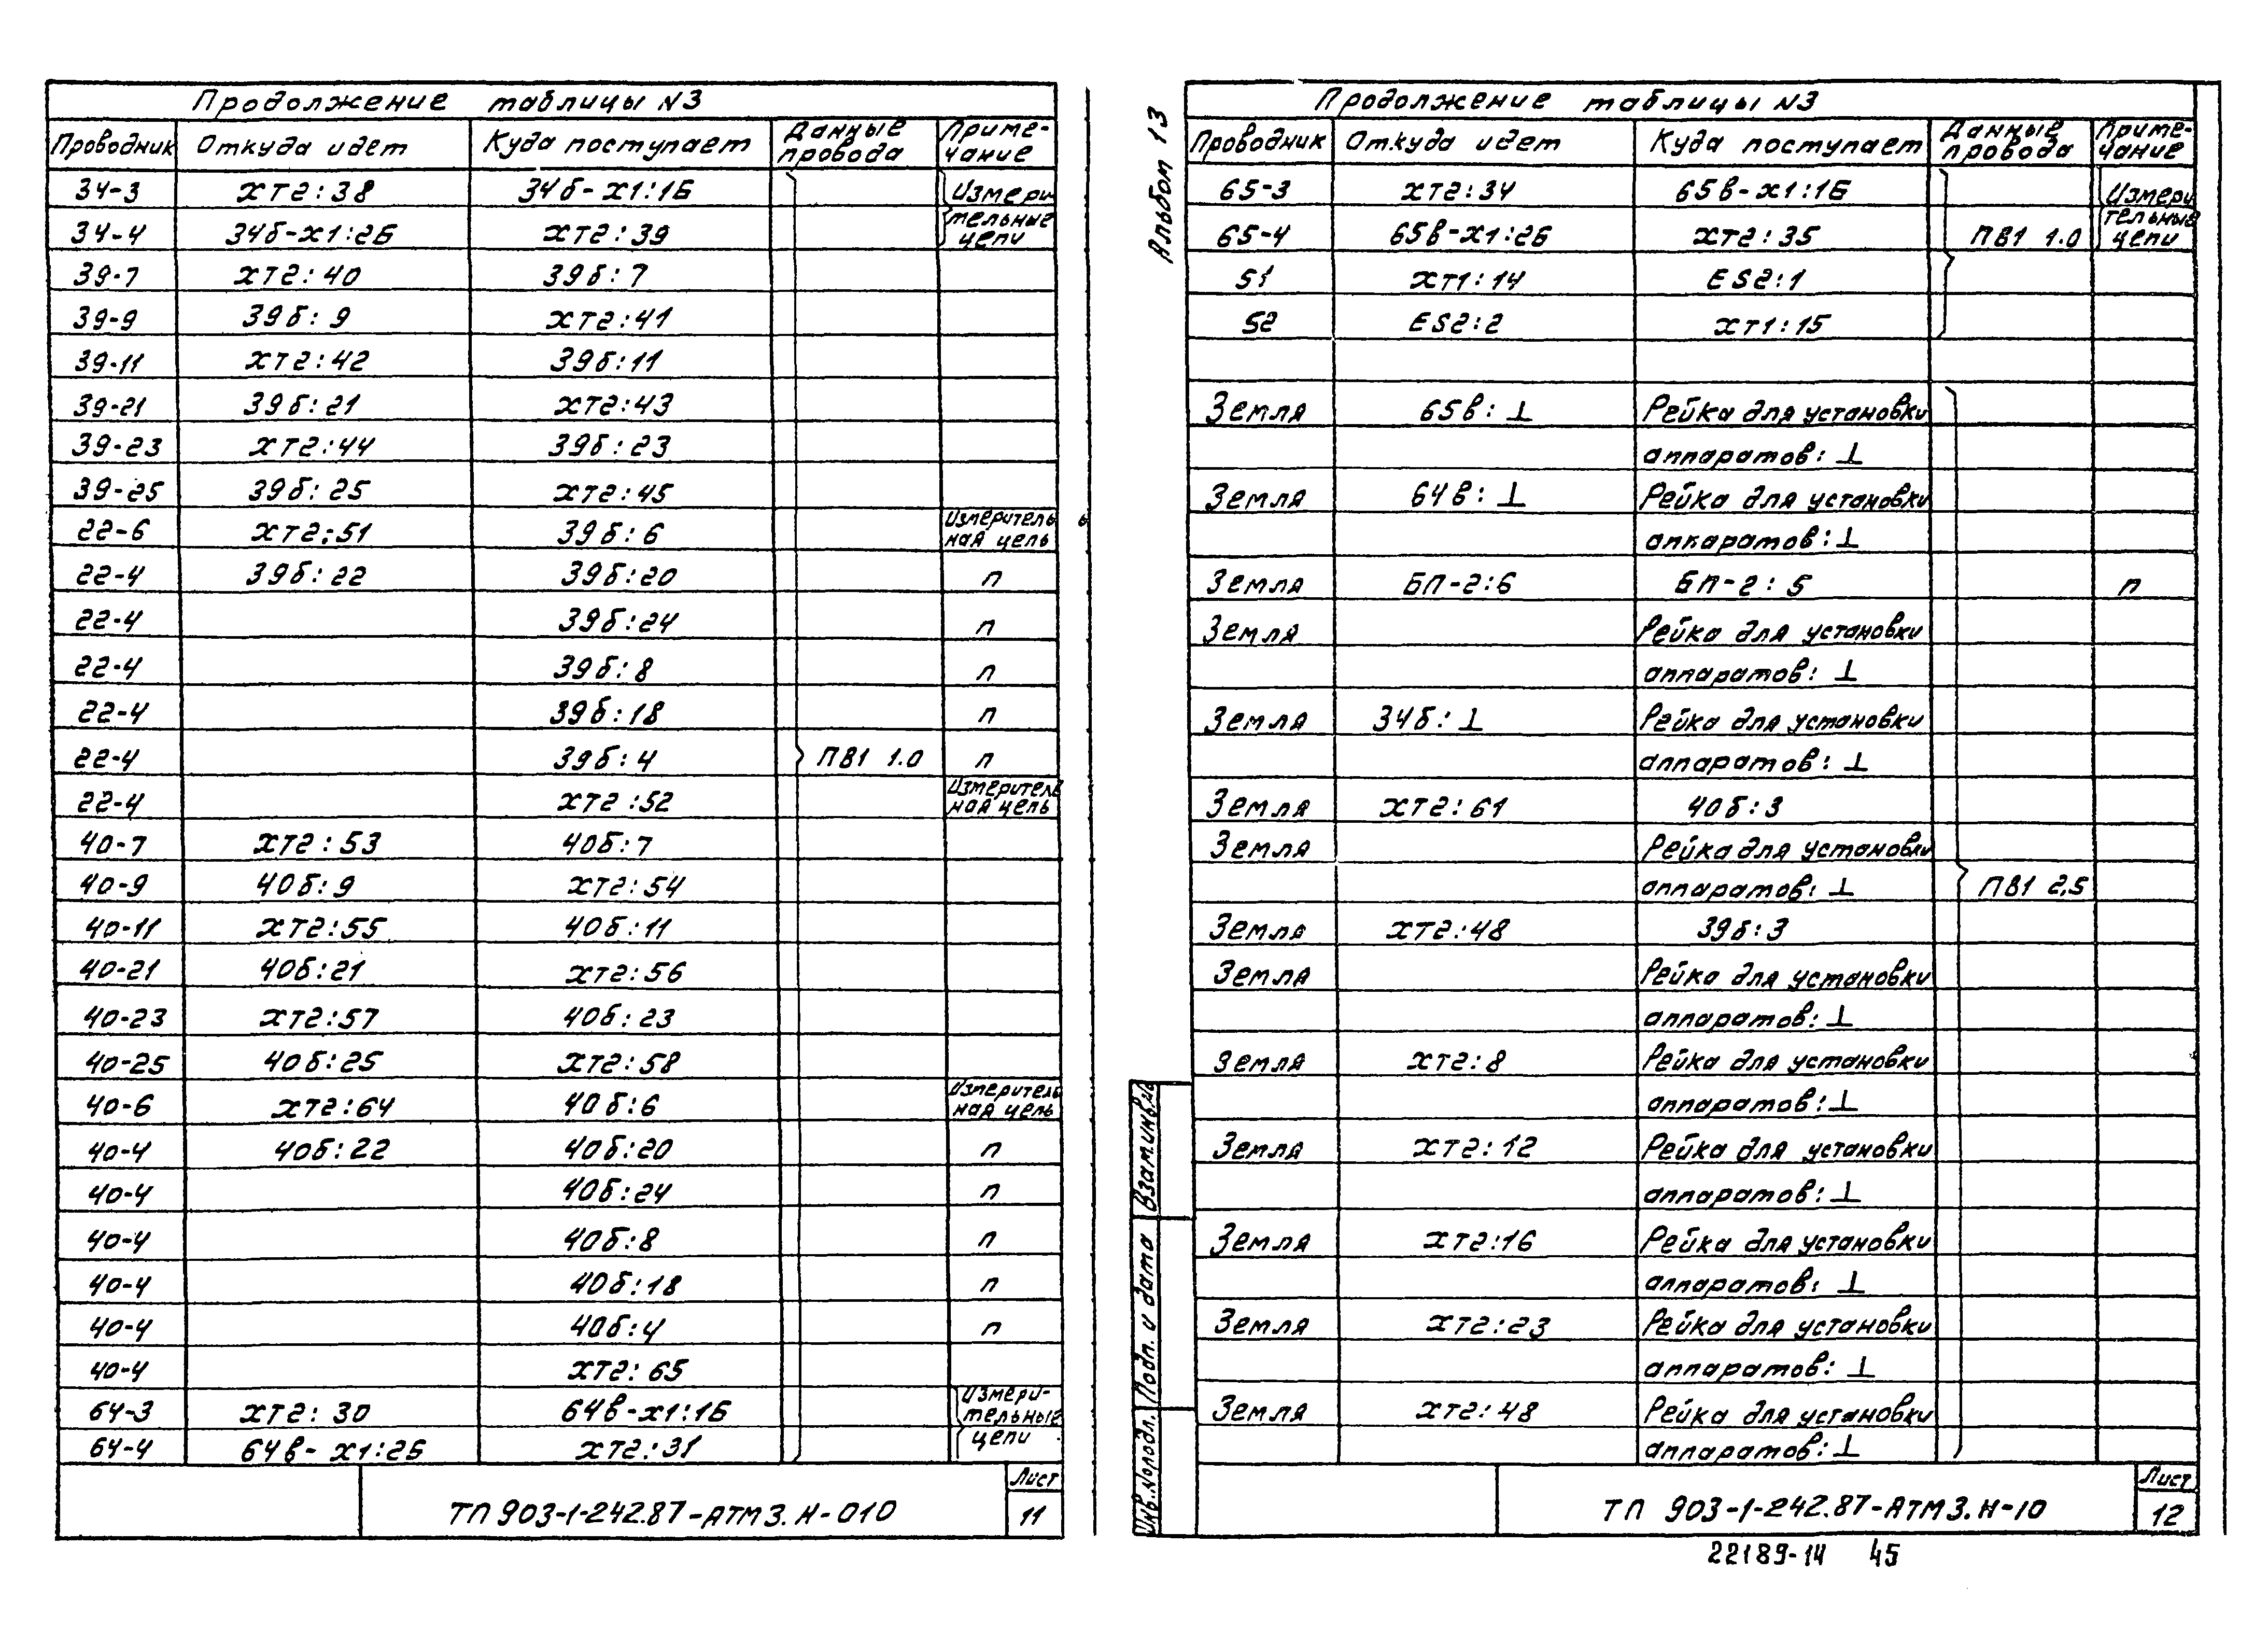 Продолжение таблицы N3
Проводник Откуда идет Куда поступает Данные провода Приме-чание
34-3 ХТ2:38 34б-Х1:1Б Измери
34-4 34б-Х1:2Б ХТ2:39 тельные цепи
39-7 ХТ2:40 39б:7
39-9 39б:9 ХТ2:41
39-11 ХТ2:42 39б:11
39-21 39б:21 ХТ2:43
39-23 ХТ2:44 39б:23
39-25 39б:25 ХТ2:45
22-6 ХТ2:51 39б:6 Измеритель ная цепь
22-4 39б:22 39б:20 п
22-4 39б:24 п
22-4 39б:8 п
22-4 39б:18 п
22-4 39б:4 ПВ1 1.0 п
22-4 ХТ2:52 Измеритель ная цепь
40-7 ХТ2:53 40б:7
40-9 40б:9 ХТ2:54
40-11 ХТ2:55 40б:11
40-21 40б:21 ХТ2:56
40-23 ХТ2:57 40б:23
40-25 40б:25 ХТ2:58
40-6 ХТ2:64 40б:6 Измеритель ная цепь
40-4 40б:22 40б:20 п
40-4 40б:24 п
40-4 40б:8 п
40-4 40б:18 п
40-4 40б:4 п
40-4 ХТ2:65
64-3 ХТ2:30 64в-Х1:1Б Измери-тельные
64-4 64в-Х1:2Б ХТ2:31 цепи
Лист
ТП 903-1-242.87-АТМ3.Н-010 11
Альбом 13
Продолжение таблицы N3
Проводник Откуда идет Куда поступает Данные провода Приме-чание
65-3 ХТ2:34 65в-Х1:1Б Измери
65-4 65в-Х1:2Б ХТ2:35 ПВ1 1.0 тельные цепи
S1 ХТ1:14 ES2:1
S2 ES2:2 ХТ1:15
Земля 65в:⊥ Рейка для установки
аппаратов:⊥
Земля 64в:⊥ Рейка для установки
аппаратов:⊥
Земля БП-2:6 БП-2:5 п
Земля Рейка для установки
аппаратов:⊥
Земля 34б:⊥ Рейка для установки
аппаратов:⊥
Земля ХТ2:61 40б:3
Земля Рейка для установки
аппаратов:⊥ ПВ1 2,5
Земля ХТ2:48 39б:3
Земля Рейка для установки
аппаратов:⊥
Земля ХТ2:8 Рейка для установки
аппаратов:⊥
Земля ХТ2:12 Рейка для установки
аппаратов:⊥
Земля ХТ2:16 Рейка для установки
аппаратов:⊥
Земля ХТ2:23 Рейка для установки
аппаратов:⊥
Земля ХТ2:48 Рейка для установки
аппаратов:⊥
Взам.инв.№
Подп. и дата
Инв.№подл.
Лист
ТП 903-1-242.87-АТМ3.Н-10 12
22189-14 45